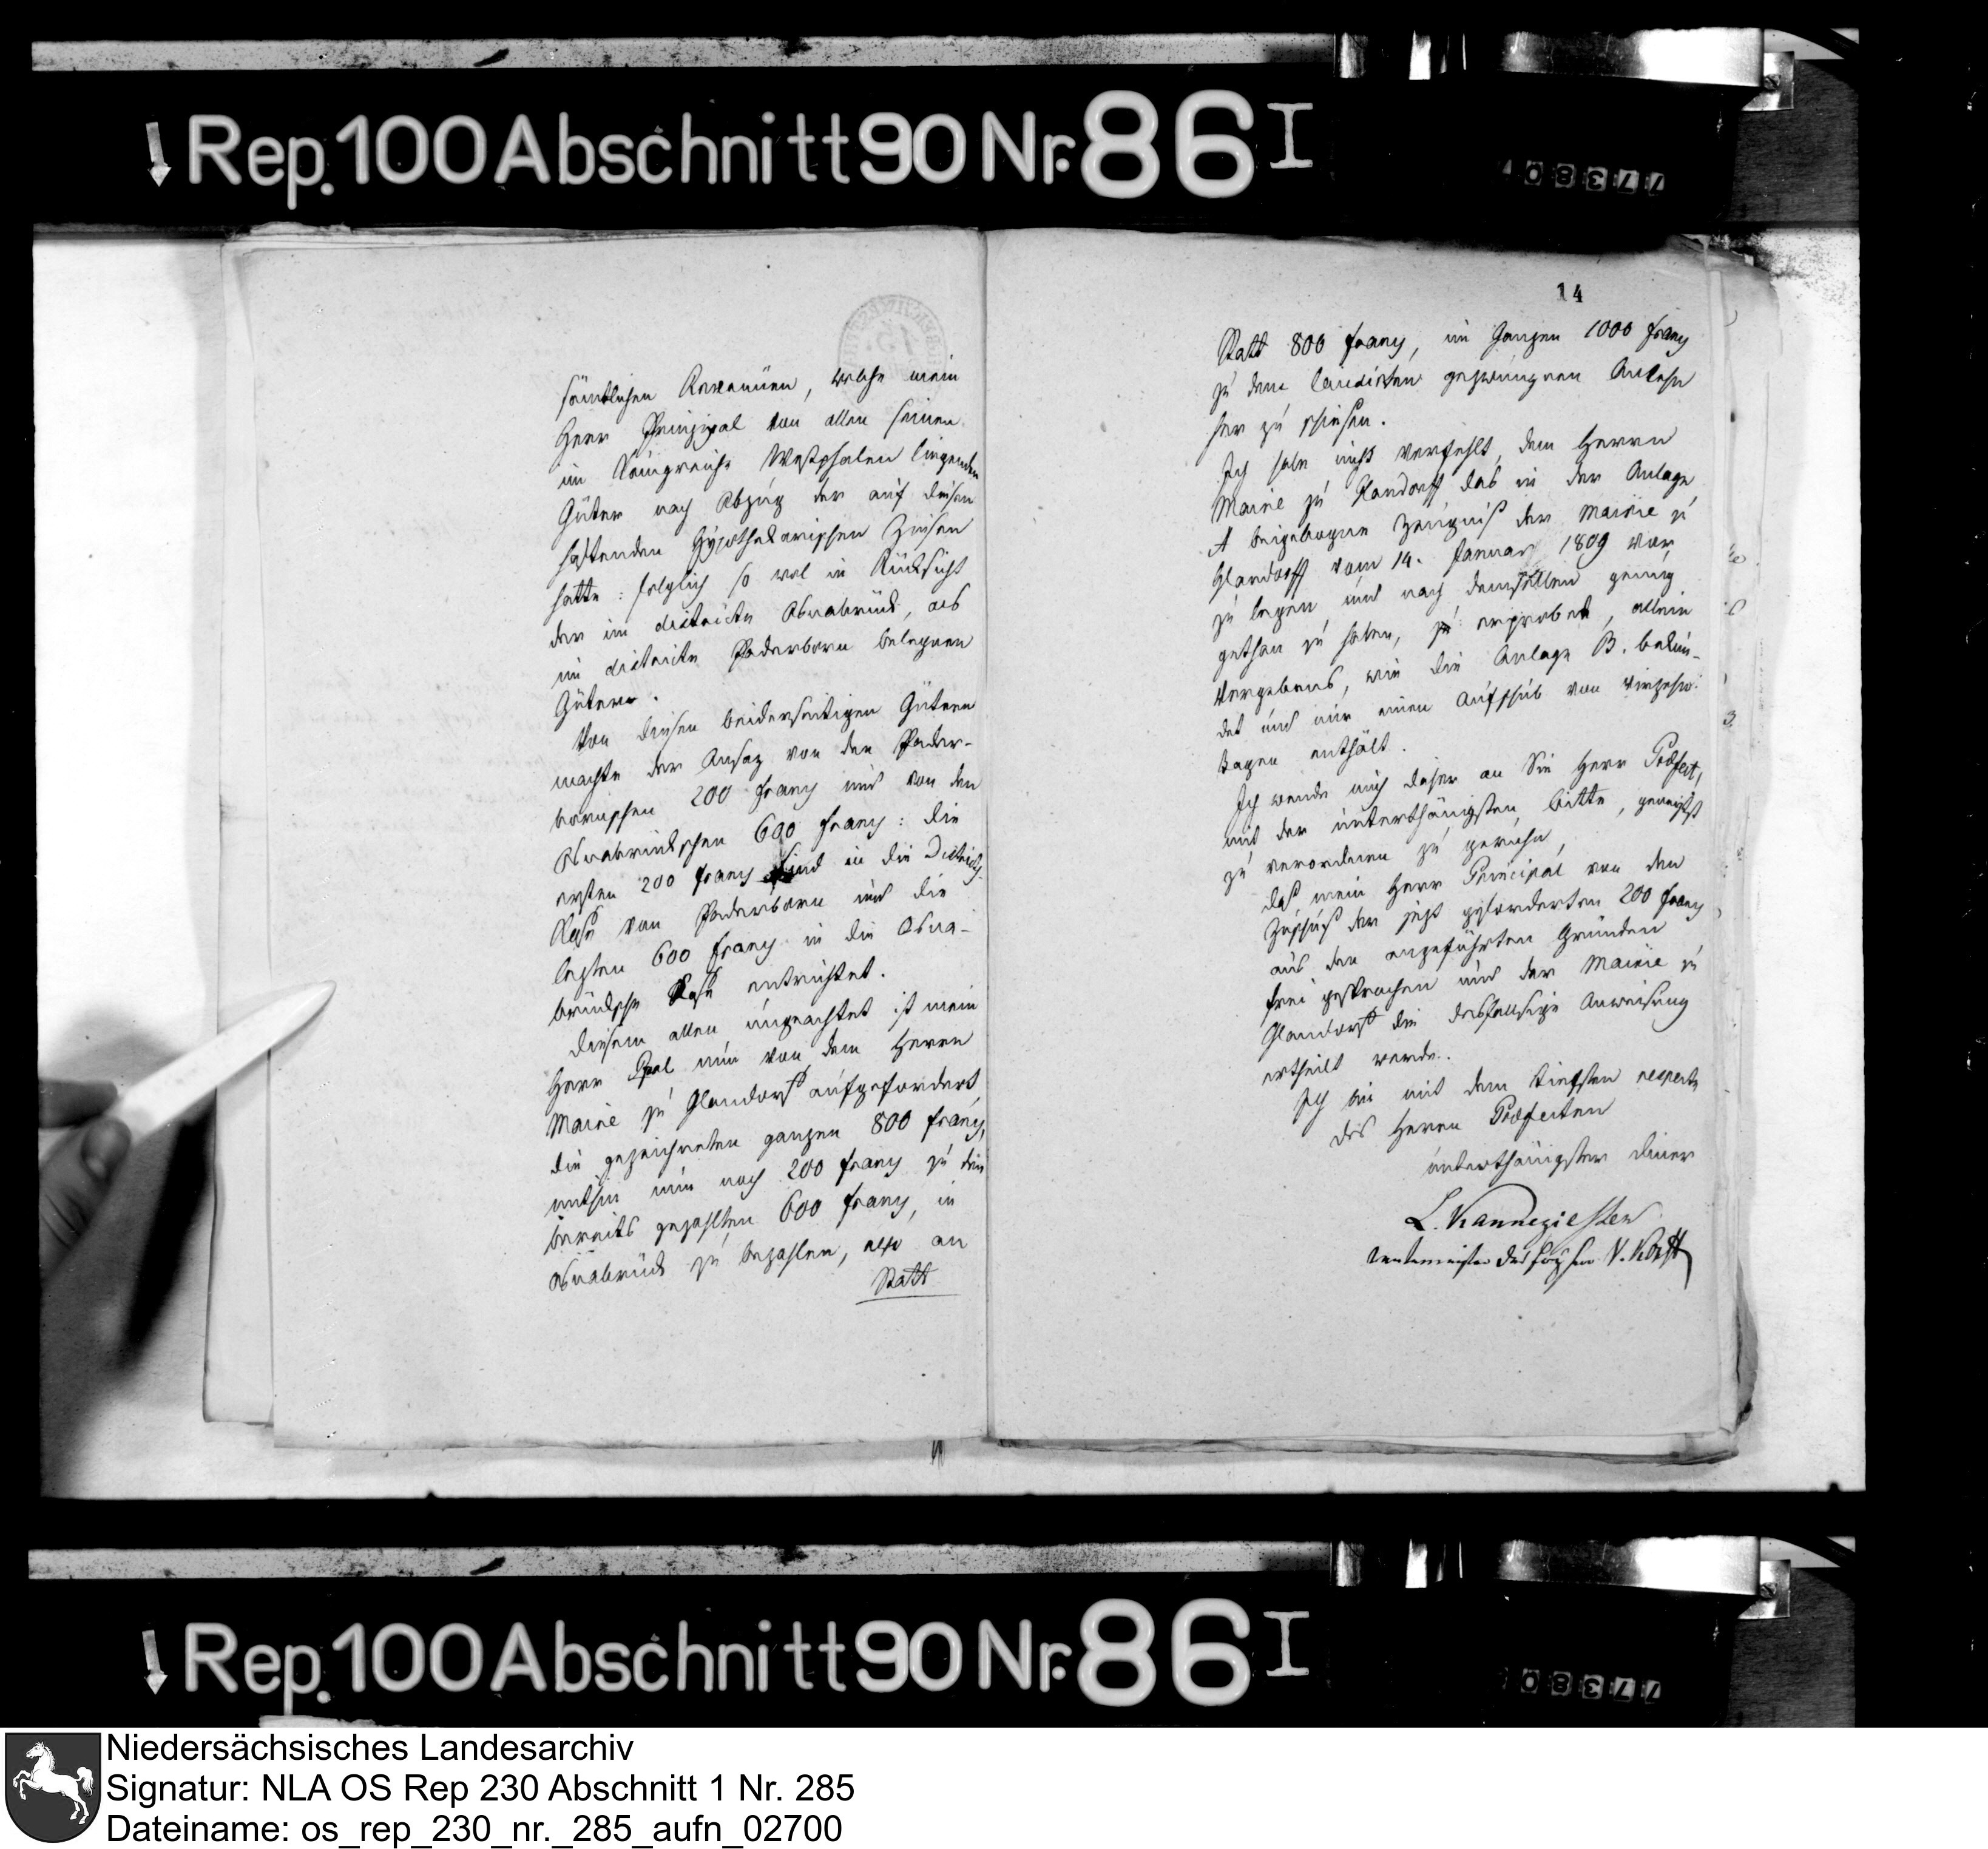 ↓ Rep. 100 Abschnitt 90 Nr. 86 I
77380
sämtlichen Revenüen, welche mein
Herr Prinzipal von allen seinen
im Königreiche Westphalen liegenden
Güter nach Abzug der auf diesen
haftenden Hypothekarischen Zinsen
hatte: folglich so wol in Rücksicht
der im districte Osnabrück, als
im districte Paderborn belegnen
Gütern.
Von diesen beiderseitigen Gütern
machte der Ansaz von den Pader-
bornschen 200 franc und von den
Osnabrückschen 600 franc: die
ersten 200 franc sind in die Districts
Kasse von Paderborn und die
lezten 600 franc in die Osna-
brücksche Kasse entrichtet.
Diesem allen ungeachtet ist mein
Herr Ppal nun von dem Herrn
Maire zu Glandorf aufgefordert
die gezeichneten ganzen 800 franc,
mithin nun noch 200 franc zu den
bereits gezahlten 600 franc, in
Osnabrück zu bezahlen, also an
Statt
14
Statt 800 franc, im Ganzen 1000 franc
zu dem gezwungnen Anlehn
her zu schiesen.
Ich habe nicht verfehlt, dem Herrn
Maire zu Glandorff das in der Anlage
A beigebogne Zeugniß der Mairie zu
Glandorff vom 14. Januar 1809 vor
zu legen und nach demselben genug
gethan zu haben, zu, allein
vergebens, wie die Anlage B. bekun-
det und nur einen Aufschub von vierzehn
tagen enthält.
Ich wende mich daher an Sie Herr Präfect,
mit der unterthänigsten bitte, geneigtst
zu verordnen zu geruhn,
daß mein Herr Principal von den
Zuschuß der jezt geforderten 200 franc
aus den angeführten Gründen
frei gesprochen und der Mairie zu
Glandorf die desfallsige Anweisung
ertheilt werde.
Ich bin mit dem tiefsten respecte
des Herrn Präfecten
unterthänigster diener
L. Kannegiesser
Rentemeister des V. Korff
↓ Rep. 100 Abschnitt 90 Nr. 86 I
77380
Niedersächsisches Landesarchiv
Signatur: NLA OS Rep 230 Abschnitt 1 Nr. 285
Dateiname: os_rep_230_nr._285_aufn_02700